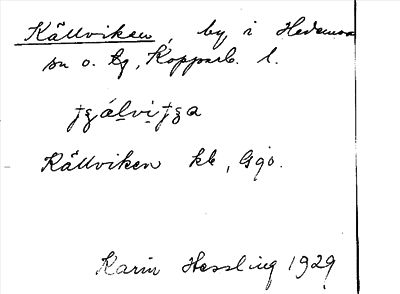 Källviken, by i Hedemora
sn o. tg, Kopparb. l.
Källviken kk, Ggo.
Karin Hessling 1929